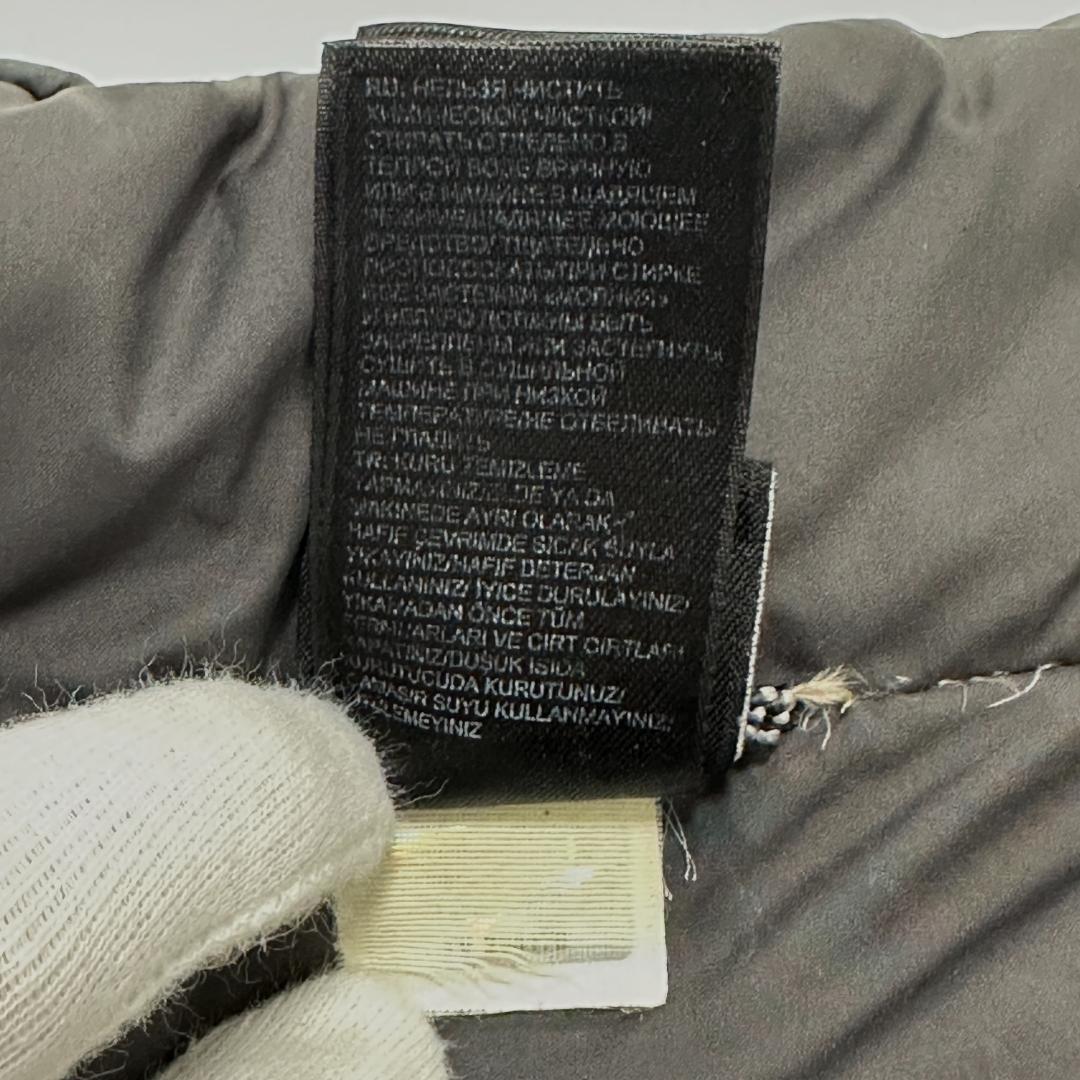 RU: НЕЛЬЗЯ ЧИСТИТЬ
ХИМИЧЕСКОЙ ЧИСТКОЙ
СТИРАТЬ ОТДЕЛЬНО В
ТЕПЛОЙ ВОДЕ ВРУЧНУЮ
ИЛИ В МАШИНЕ В ЩАДЯЩЕМ
МОЮЩЕЕ
СРЕДСТВО/ТЩАТЕЛЬНО
ПРИ СТИРКЕ
ВСЕ ЗАСТЕЖКИ «МОЛНИЯ»
БЫТЬ
ИЛИ ЗАСТЕГНУТЫ
СУШИТЬ В СУШИЛЬНОЙ
МАШИНЕ ПРИ НИЗКОЙ
ТЕМПЕРАТУРЕ/НЕ ОТБЕЛИВАТЬ/
НЕ ГЛАДИТЬ
TR: KURU TEMIZLEME
YAPMAYINIZ/ELDE YA DA
MAKINEDE AYRI OLARAK
HAFIF ÇEVRIMDE SICAK SUYLA
YIKAYINIZ/HAFIF DETERJAN
KULLANINIZ/ IYICE DURULAYINIZ/
YIKAMADAN ÖNCE TÜM
FERMUARLARI VE CIRT CIRTLARI
KAPATINIZ/DÜŞÜK ISIDA
KURUTUCUDA KURUTUNUZ/
ÇAMAŞIR SUYU KULLANMAYINIZ/
ÜTÜLEMEYINIZ